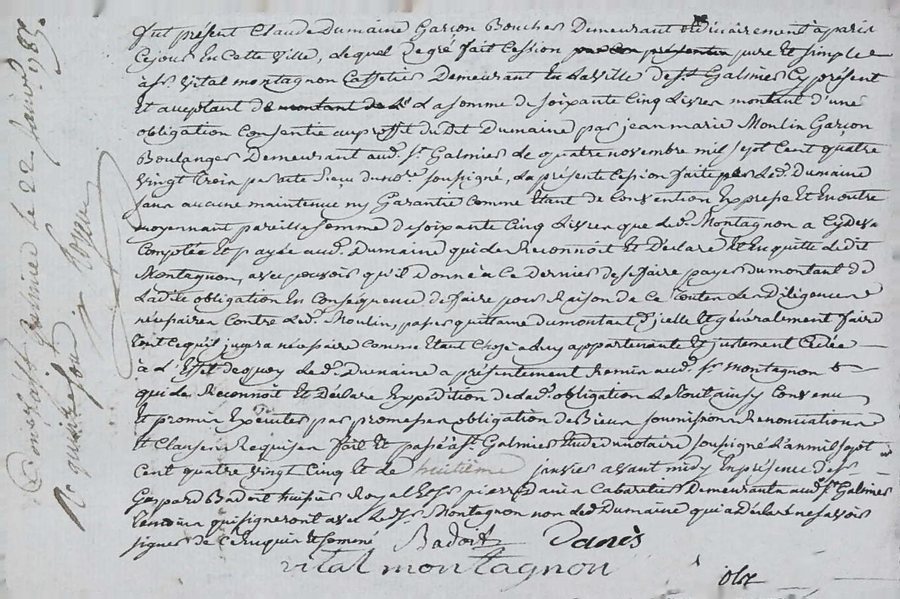 fut présent Claude Dumaine Garçon Boucher Demeurant ordinairement à paris
Ce jour En Cette Ville, Lequel de gré fait Cession par ces présentes pure Et simple
à sr. Vital montagnon Cassetier Demeurant En La Ville de st. Galmier Cy présent
Et acceptant de montant de La somme de soixante Cinq Livres montant d'une
obligation Consentie au proffit du Dit Dumaine par jean marie Moulin Garçon
Boulanger Demeurant aud. st. Galmier de quatre novembre mil sept Cent quatre
Vingt Trois par acte Reçu du nore. soussigné, La présente Cession faite par Led. Dumaine
sans aucune maintenue ny Garantie Comme Etant de Convention Expresse Et En outre
moyennant pareille somme de soixante Cinq Livres que Led. Montagnon a Cy devt.
Comptée Et payée aud. Dumaine qui Le Reconnoit Et Déclare Et En quitte Le dit
Montagnon, avec pouvoir qu'il donne à Ce Dernier de se faire payer du montant de
Ladite obligation En Consequence de faire pour Raison de Ce toutes Les Diligences
nécessaires Contre Led. Moulin, passer quittance du montant d'jcelle Et généralement faire
tout Ce qu'il jugera nécessaire Comme Etant Chose à luy appartenante Et justement Cédée
à L'Effet de quoy Led. Dumaine a présentement Remis aud. sr. Montagnon
qui Le Reconnoit Et Déclare Expédition de Lad. obligation Le tout ainsy Convenu
Et promis Exécuter par promesses obligation de Biens soumissions Renonciations
Et Clauses Requises fait Et passé à st. Galmier Etude du notaire soussigné L'an mil sept
Cent quatre Vingt Cinq Et Le huitième janvier avant midy En présence de sr.
Gaspard Badoit huissier Royal Et sr. pierre Danès Cabaretier Demeurants aud. st. Galmier
témoins qui signeront avec Led. sr. Montagnon non Led. Dumaine qui a déclaré ne savoir
signer de Ce Enquis Et sommé
Badoit Danès
vital montagnon
Controllé à st Galmier le 22 janvr. 1785
Rc quinze sou